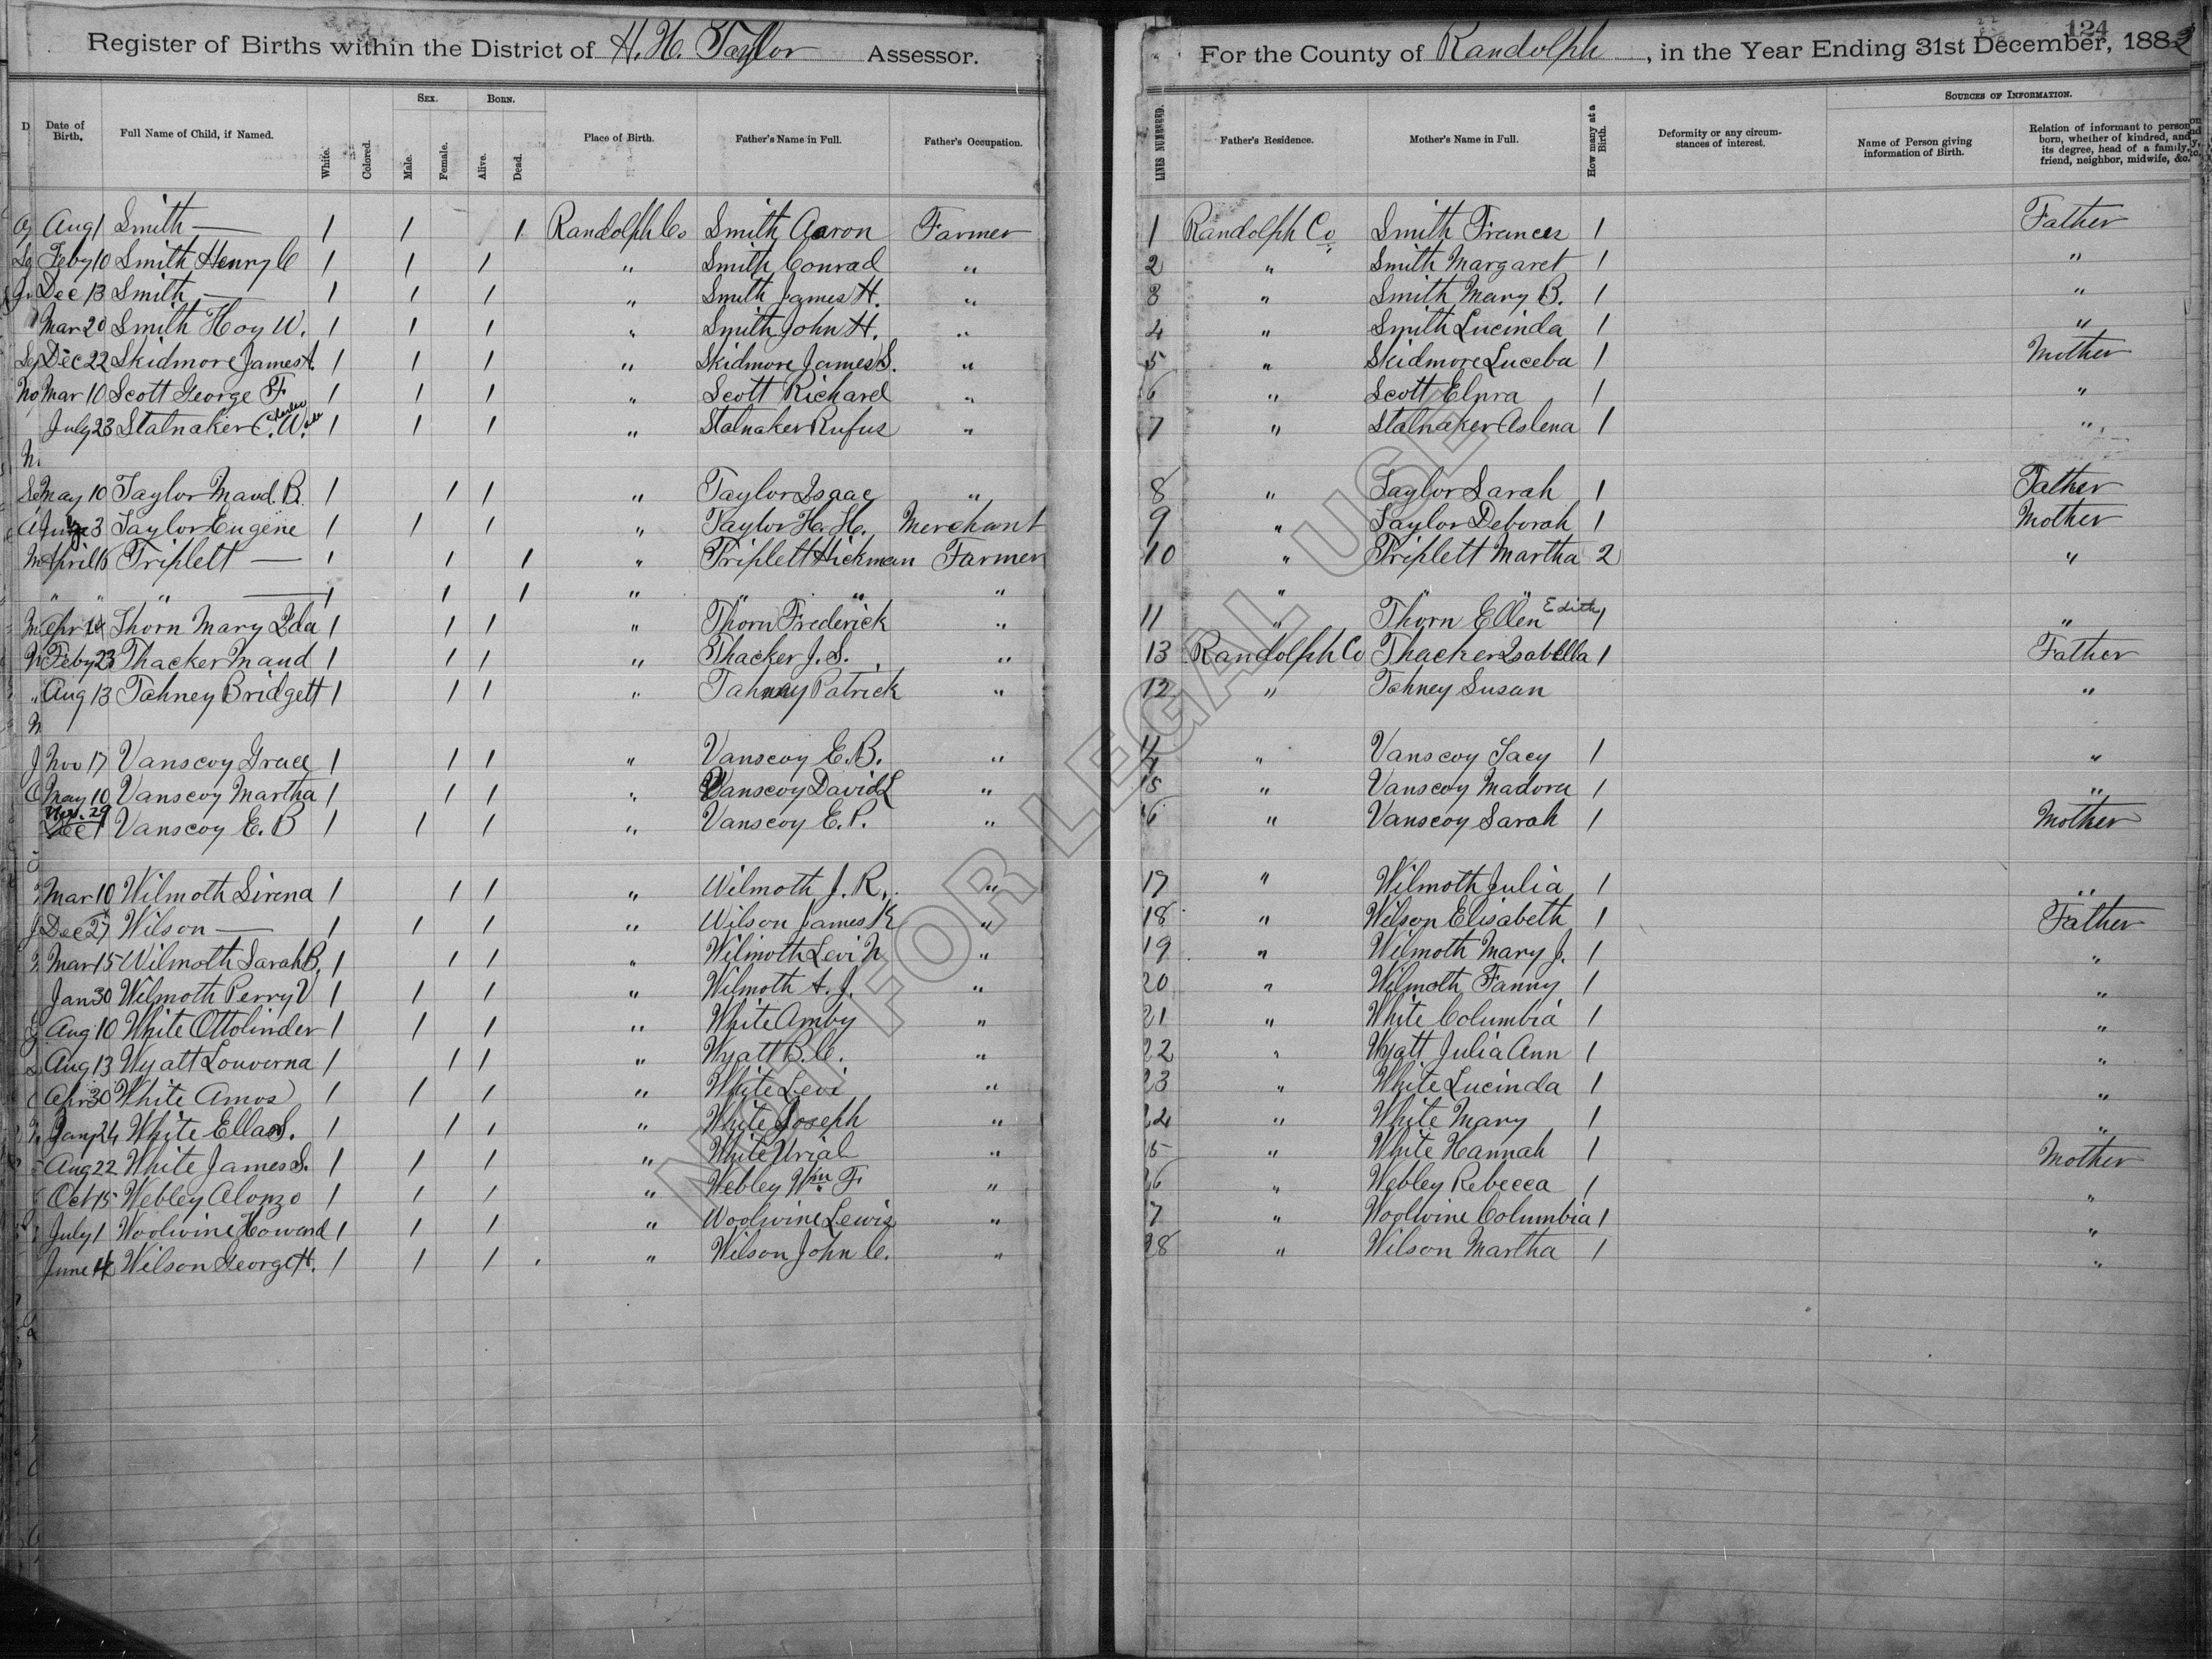 124
Register of Births within the District of H. H. Taylor Assessor. For the County of Randolph, in the Year Ending 31st December, 1883
Date of Birth. Full Name of Child, if Named. White. Colored. Sex. Male. Female. Born. Alive. Dead. Place of Birth. Father's Name in Full. Father's Occupation. LINES NUMBERED. Father's Residence. Mother's Name in Full. How many at a Birth. Deformity or any circumstances of interest. Sources of Information. Name of Person giving information of Birth. Relation of informant to person born, whether of kindred, and its degree, head of a family, friend, neighbor, midwife, &c.
Aug 1 Smith — 1 1 1 Randolph Co Smith Aaron Farmer 1 Randolph Co Smith Frances 1 Father
Feby 10 Smith Henry C 1 1 1 " Smith Conrad " 2 " Smith Margaret 1 "
Dec 13 Smith — 1 1 1 " Smith James H. " 3 " Smith Mary B. 1 "
Mar 20 Smith Hoy W. 1 1 1 " Smith John H. " 4 " Smith Lucinda 1 "
Dec 22 Skidmore James A. 1 1 1 " Skidmore James S. " 5 " Skidmore Luceba 1 Mother
Mar 10 Scott George F. 1 1 1 " Scott Richard " 6 " Scott 1 "
July 23 Stalnaker C. W. Charles 1 1 1 " Stalnaker Rufus " 7 " Stalnaker Aslena 1 "
May 10 Taylor Maud. B. 1 1 1 " Taylor Isaac " 8 " Taylor Sarah 1 Father
3 Taylor Eugene 1 1 1 " Taylor H. H. Merchant 9 " Taylor Deborah 1 Mother
April 16 Triplett — 1 1 1 " Triplett Hickman Farmer 10 " Triplett Martha 2 "
" " " — 1 1 1 " " " " " "
Apr 14 Thorn Mary Ida 1 1 1 " Thorn Frederick " 11 " Thorn Ellen Edith 1 "
Feby 23 Thacker Maud 1 1 1 " Thacker J. S. " 13 Randolph Co Thacker Isabella 1 Father
Aug 13 Tahney Bridgett 1 1 1 " Tahney Patrick " 12 " Tahney Susan "
Nov 17 Vanscoy Grace 1 1 1 " Vanscoy E. B. " 14 " Vanscoy Tacy 1 "
May 10 Vanscoy Martha 1 1 1 " Vanscoy David L " 15 " Vanscoy Madora 1 "
Nov. 29 Dec 1 Vanscoy E. B 1 1 1 " Vanscoy E. P. " 16 " Vanscoy Sarah 1 Mother
Mar 10 Wilmoth Sirena 1 1 1 " Wilmoth J. R. " 17 " Wilmoth Julia 1 "
Dec 27 Wilson — 1 1 1 " Wilson James K " 18 " Wilson Elisabeth 1 Father
Mar 15 Wilmoth Sarah B. 1 1 1 " Wilmoth Levi N " 19 " Wilmoth Mary J. 1 "
Jan 30 Wilmoth Perry V 1 1 1 " Wilmoth A. J. " 20 " Wilmoth Fanny 1 "
Aug 10 White Ottolinder 1 1 1 " White Amby " 21 " White Columbia 1 "
Aug 13 Wyatt Louverna 1 1 1 " Wyatt B. C. " 22 " Wyatt Julia Ann 1 "
Apr 30 White Amos 1 1 1 " White Levi " 23 " White Lucinda 1 "
Jany 24 White Ella S. 1 1 1 " White Joseph " 24 " White Mary 1 "
Aug 22 White James S. 1 1 1 " White Urial " 25 " White Hannah 1 Mother
Oct 15 Webley Alonzo 1 1 1 " Webley Wm F " 26 " Webley Rebecca 1 "
July 1 Woolwine Howard 1 1 1 " Woolwine Lewis " 27 " Woolwine Columbia 1 "
June 14 Wilson George H. 1 1 1 " Wilson John C. " 28 " Wilson Martha 1 "
NOT FOR LEGAL USE